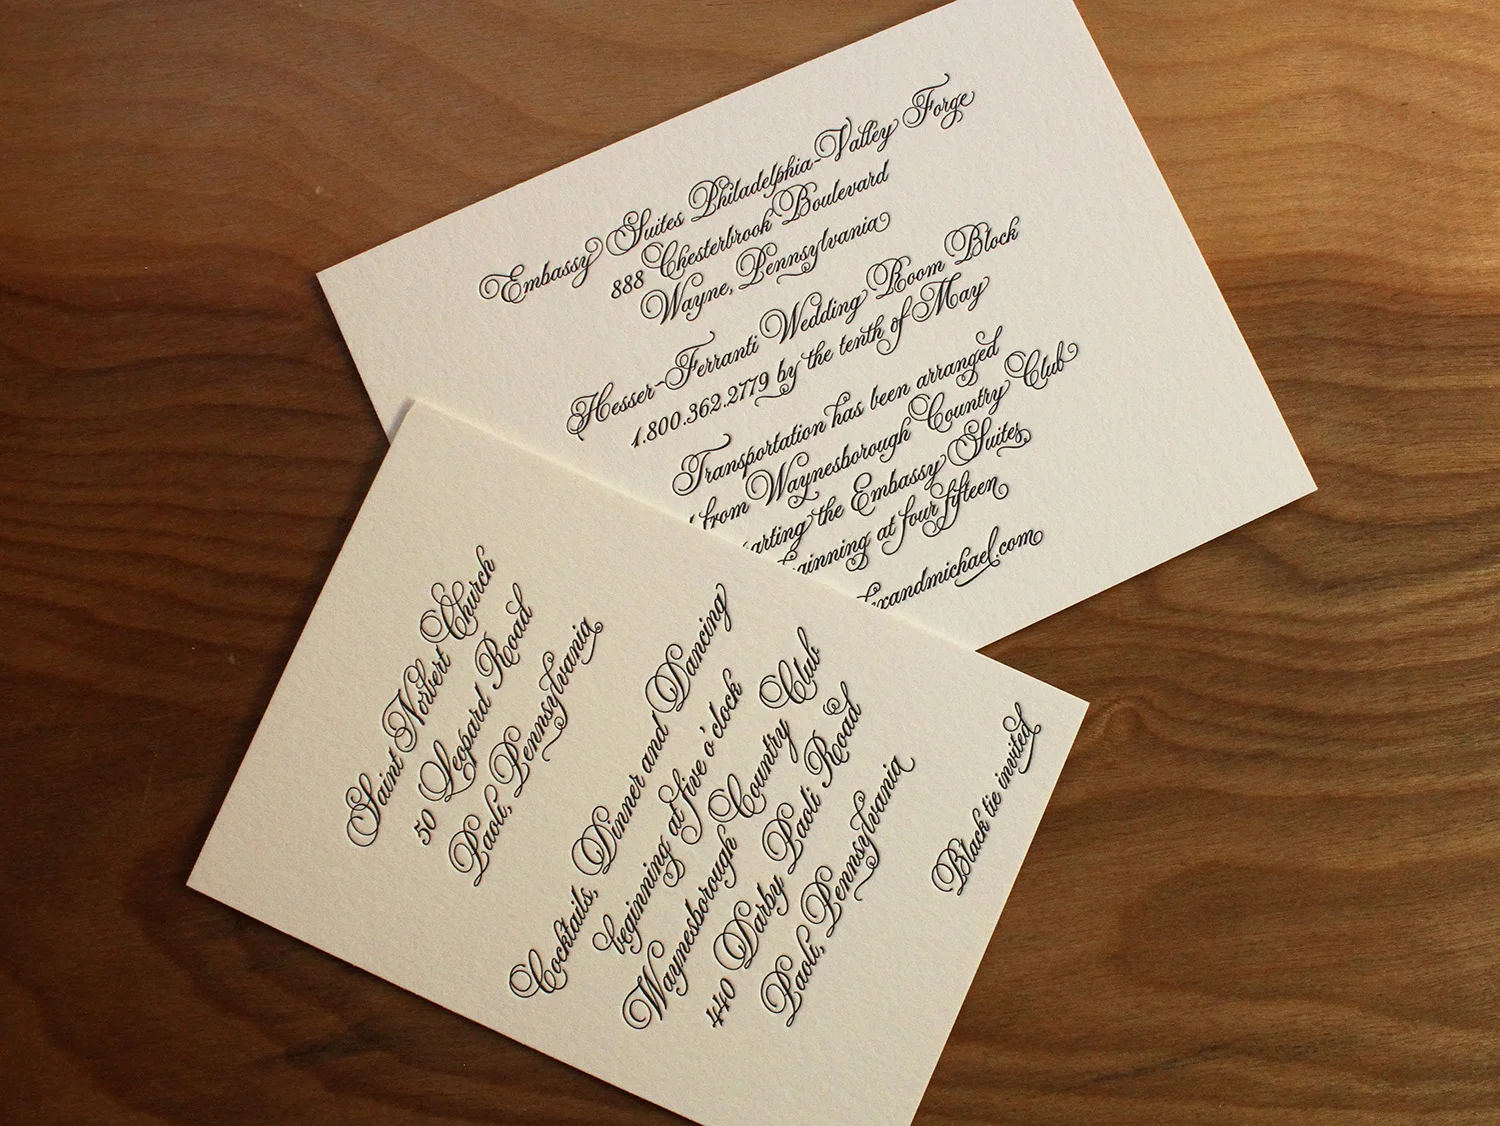 Embassy Suites Philadelphia-Valley Forge
888 Chesterbrook Boulevard
Wayne, Pennsylvania
Hesser-Ferranti Wedding Room Block
1.800.362.2779 by the tenth of May
Transportation has been arranged
from Waynesborough Country Club
arting the Embassy Suites
ginning at four fifteen
exandmichael.com
Saint Norbert Church
50 Leopard Road
Paoli, Pennsylvania
Cocktails, Dinner and Dancing
beginning at five o'clock
Waynesborough Country Club
440 Darby Paoli Road
Paoli, Pennsylvania
Black tie invited